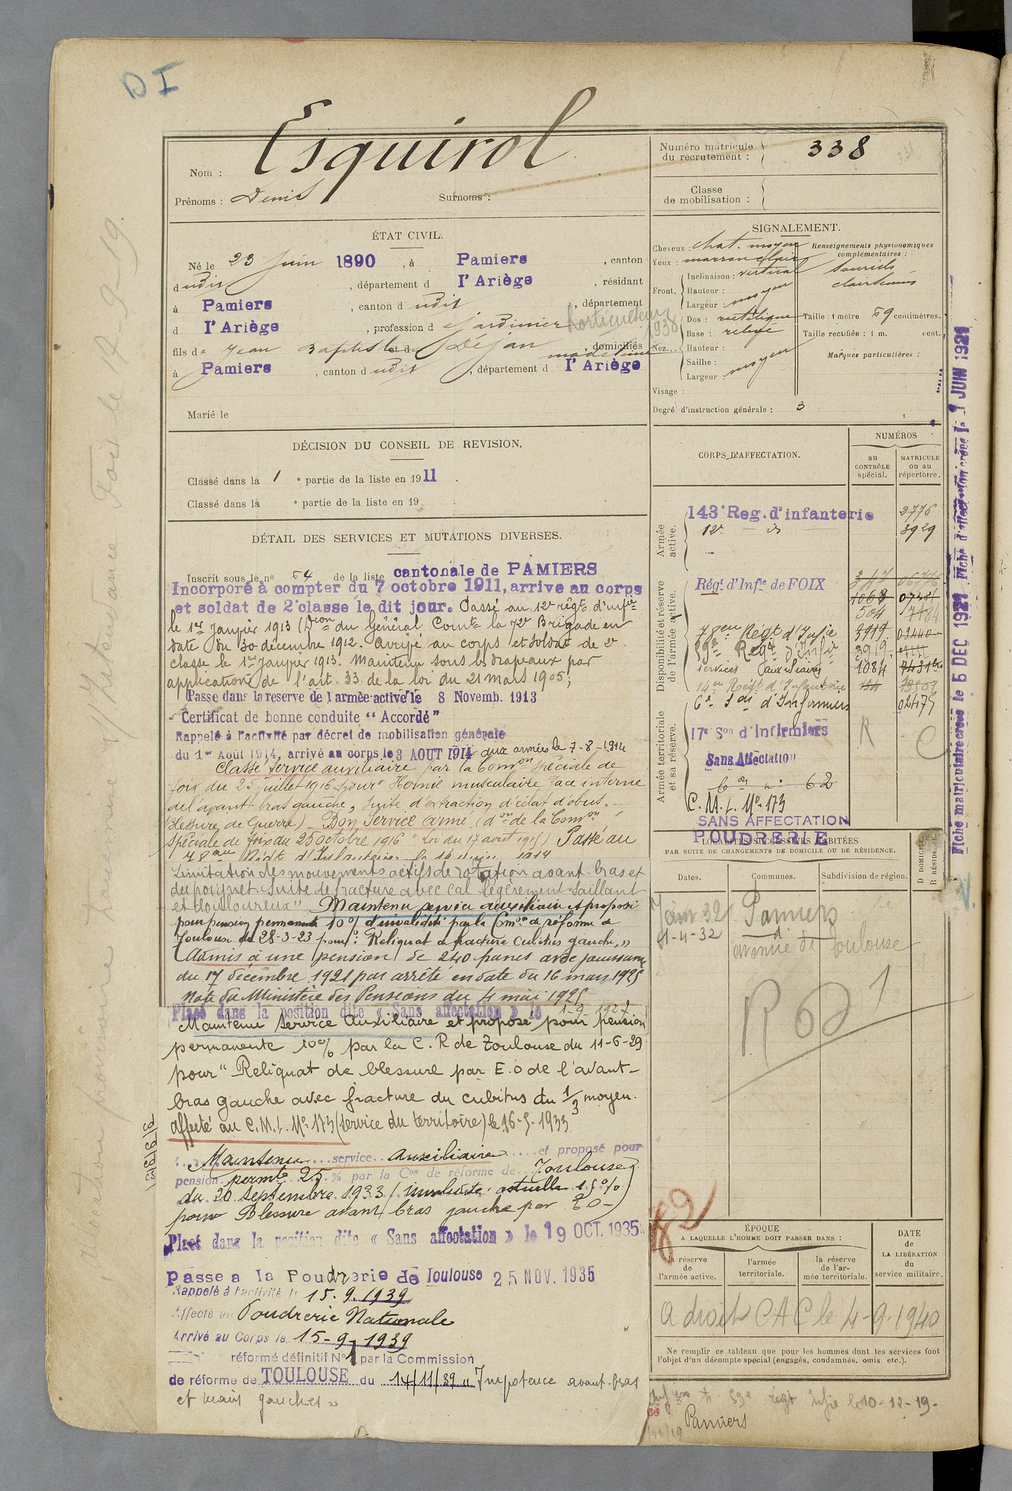 DI
Nom : Esquirol
Prénoms : Denis Surnoms :
Numéro matricule du recrutement : 338
Classe de mobilisation :
ÉTAT CIVIL.
Né le 23 Juin 1890, à Pamiers, canton
dudit, département d l'Ariège, résidant
à Pamiers, canton dudit, département
d l'Ariège, profession d jardinier horticulteur 1938
fils de Jean Baptiste et de Dejan madeleine domiciliés
à Pamiers, canton dudit, département d l'Ariège
Marié le
SIGNALEMENT.
Cheveux : chat. moyen
Yeux : marron clair
Front, Inclinaison : vertical
Hauteur :
Largeur : moyen
Nez Dos : rectiligne
Base : relevé
Hauteur :
Saillie :
Largeur : moyen
Visage :
Renseignements physionomiques complémentaires :
sourcils
clairsemés
Taille : 1 mètre 69 centimètres.
Taille rectifiée : 1 m. cent.
Marques particulières :
Degré d'instruction générale : 3
DÉCISION DU CONSEIL DE REVISION.
Classé dans la 1e partie de la liste en 1911.
Classé dans la e partie de la liste en 19
DÉTAIL DES SERVICES ET MUTATIONS DIVERSES.
Inscrit sous le no 54 de la liste cantonale de PAMIERS
Incorporé à compter du 7 octobre 1911, arrive au corps
et soldat de 2e classe le dit jour. Passé au 12e régt d'infie
le 1er Janvier 1913 (Don du Général Comt la 7e Brigade en
date du 30 décembre 1912. Arrivé au corps et soldat de 2e
classe le 1er Janvier 1913. Maintenu sous les drapeaux par
application de l'art. 33 de la loi du 21 mars 1905;
Passé dans la reserve de l'armée active le 8 Novemb. 1913
- Certificat de bonne conduite "Accordé"
Rappelé à l'activité par décret de mobilisation générale
du 1er Août 1914, arrivé au corps le 3 AOUT 1914 aux armées le 7-8-1914
Classé Service auxiliaire par la Comon Spéciale de
Foix du 25 juillet 1916 pour "Hernie musculaire face interne
de l'avant bras gauche, suite d'extraction d'éclat d'obus. -
(Blessure de Guerre) - Bon Service armé (don de la Comon
Spéciale de Foix du 25 octobre 1916 Loi du 17 août 1915) Passé au
Limitation des mouvements actifs de rotation avant-bras et
du poignet. Suite de fracture avec cal légèrement saillant
et douloureux" Maintenu service auxiliaire et proposé
pour pension permanente 10% d'invalidité par la Comon de réforme de
Toulouse du 28-3-23 pour : "Reliquat de fracture cubitus gauche"
Admis à une pension de 240 francs avec jouissance
du 17 décembre 1921 par arrêté en date du 16 mars 1925
Note du Ministère des Pensions du 4 mai 1925
Placé dans la position dite « Sans affectation » le 1-9-1927
Maintenu Service Auxiliaire et proposé pour pension
permanente 10% par la C. R de Toulouse du 11-6-29
pour "Reliquat de blessure par E.O de l'avant-
bras gauche avec fracture du cubitus du 1/3 moyen.
affecté au C.M.I. No 173 (service du territoire) le 16-5-1933
Maintenu service Auxiliaire et proposé pour
pension permte 25 % par la Con de réforme de Toulouse
du 20 Septembre 1933 (invalidité actuelle 15%)
pour Blessure avant bras gauche par EO-
Placé dans la position dite « Sans affectation » le 19 OCT. 1935
Passé à la Poudrerie de Toulouse 25 NOV. 1935
Rappelé à l'activité le 15.9.1939
Affecté au Poudrerie Nationale
Arrivé au Corps le 15-9-1939
réformé définitif No 1 par la Commission
de réforme de TOULOUSE du 14/11/39 "Impotence avant-bras
et main gauches"
CORPS D'AFFECTATION.
NUMÉROS
AU CONTRÔLE spécial.
MATRICULE OU AU répertoire.
Armée active.
143e Reg. d'infanterie 3776
12e - do 3929
Disponibilité et réserve de l'armée active.
Régt d'Infie de FOIX
1068
504
78eme Régt d'Infie 3919
59e Regt d'Infie 3919
services auxiliaires 1084
14e Régt d'Infanterie
6e Son d'Infirmiers 02475
Armée territoriale et sa réserve.
17e Son d'Infirmiers
R C
Sans Affectation
C.M.I. No 173
SANS AFFECTATION
POUDRERIE
LOCALITÉS SUCCESSIVES HABITÉES
PAR SUITE DE CHANGEMENTS DE DOMICILE OU DE RÉSIDENCE.
Dates. Communes. Subdivision de région. D DOMICILE R RÉSIDENCE
7 Janv 32 Pamiers
21-4-32 d°
avenue de Toulouse
R D 1
ÉPOQUE
A LAQUELLE L'HOMME DOIT PASSER DANS :
la réserve de l'armée active.
l'armée territoriale.
la réserve de l'armée territoriale.
DATE DE LA LIBÉRATION du service militaire.
a droit CAC le 4-9-1940
Ne remplir ce tableau que pour les hommes dont les services font
l'objet d'un décompte spécial (engagés, condamnés, omis, etc.).
59e régt Infie le 10-12-19-
Pamiers
Fiche matriculaire créée le 5 DEC 1921 Fiche d'affectation créée le 1 JUIN 1921